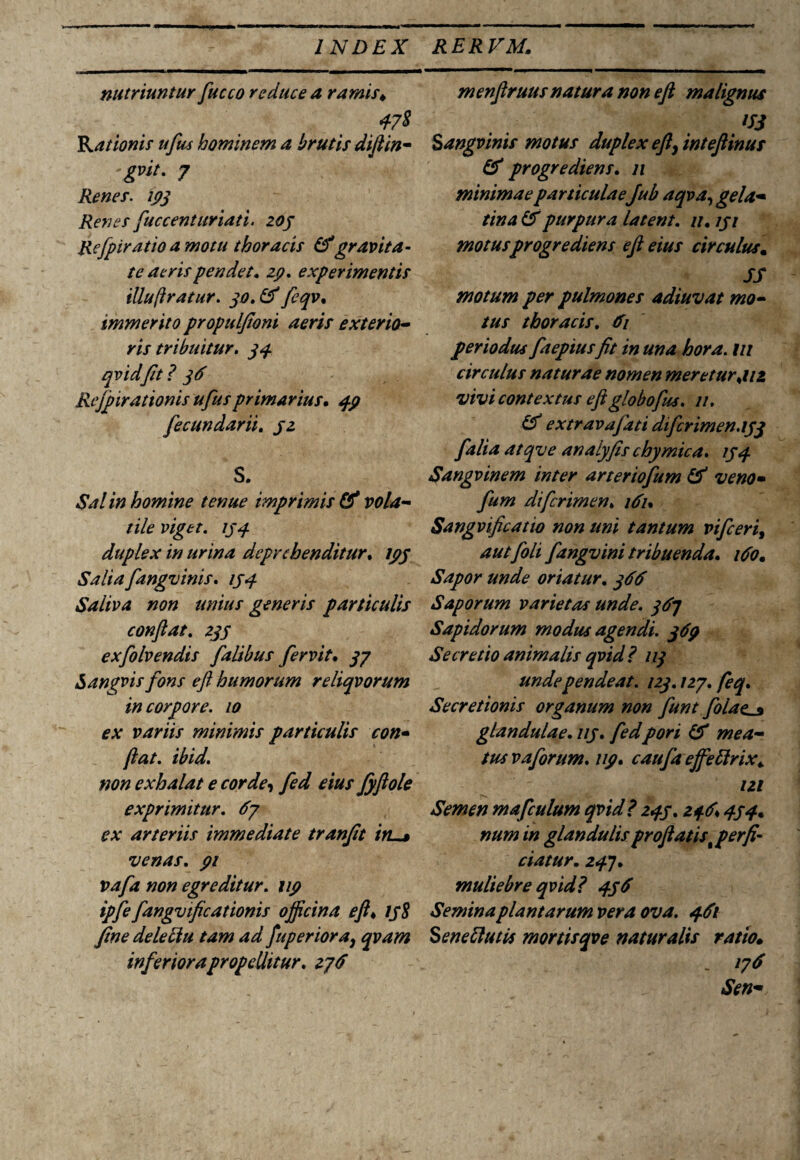 INDEX RERVM.
nutriuntur ſucco reduce a ramis.
478
Rationis uſus hominem a brutis diſtin-
gvit. 7
Renes. 193
Renes ſuccenturiati. 205
Reſpiratio a motu thoracis & gravita-
te aeris pendet. 29. experimentis
illuſtratur. 30. & ſeqv.
immerito propulſioni aeris exterio-
ris tribuitur. 34
qvid ſit? 36
Reſpirationis uſus primarius. 49
ſecundarii. 52
S.
Sal in homine tenue imprimis & vola-
tile viget. 154
duplex in urina deprehenditur. 195
Salia ſangvinis. 154
Saliva non unius generis particulis
conſtat. 235
exſolvendis ſalibus ſervit. 37
Sangvis fons eſt humorum reliqvorum
in corpore. 10
ex variis minimis particulis con-
ſtat. ibid.
non exhalat e corde, ſed eius ſyſtole
exprimitur. 67
ex arteriis immediate tranſit in
venas. 91
vaſa non egreditur. 119
ipſe ſangvificationis officina eſt. 158
ſine delectu tam ad ſuperiora, qvam
inferiora propellitur. 276
menſtruus natura non eſt malignus
153
Sangvinis motus duplex eſt, inteſtinus
& progrediens. 11
minimae particulae ſub aqva, gela-
tina & purpura latent. 11. 151
motus progrediens eſt eius circulus.
55
motum per pulmones adiuvat mo-
tus thoracis. 61
periodus ſaepius fit in una hora. 111
circulus naturae nomen meretur. 112
vivi contextus eſt globoſus. 11.
& extravaſati diſcrimen. 153
ſalia atqve analyſis chymica. 154
Sangvinem inter arterioſum & veno-
ſum diſcrimen. 161.
Sangvificatio non uni tantum viſceri,
aut ſoli ſangvini tribuenda. 160.
Sapor unde oriatur. 366
Saporum varietas unde. 367
Sapidorum modus agendi. 369
Secretio animalis qvid? 113
unde pendeat. 123. 127. ſeq.
Secretionis organum non ſunt ſolae
glandulae. 115. ſed pori & mea-
tus vaſorum. 119. cauſa effectrix.
121
Semen maſculum qvid? 245. 246. 454.
num in glandulis proſtatis, perfi-
ciatur. 247.
muliebre qvid? 456
Semina plantarum vera ova. 461
Senectutis mortisqve naturalis ratio.
176
Sen-